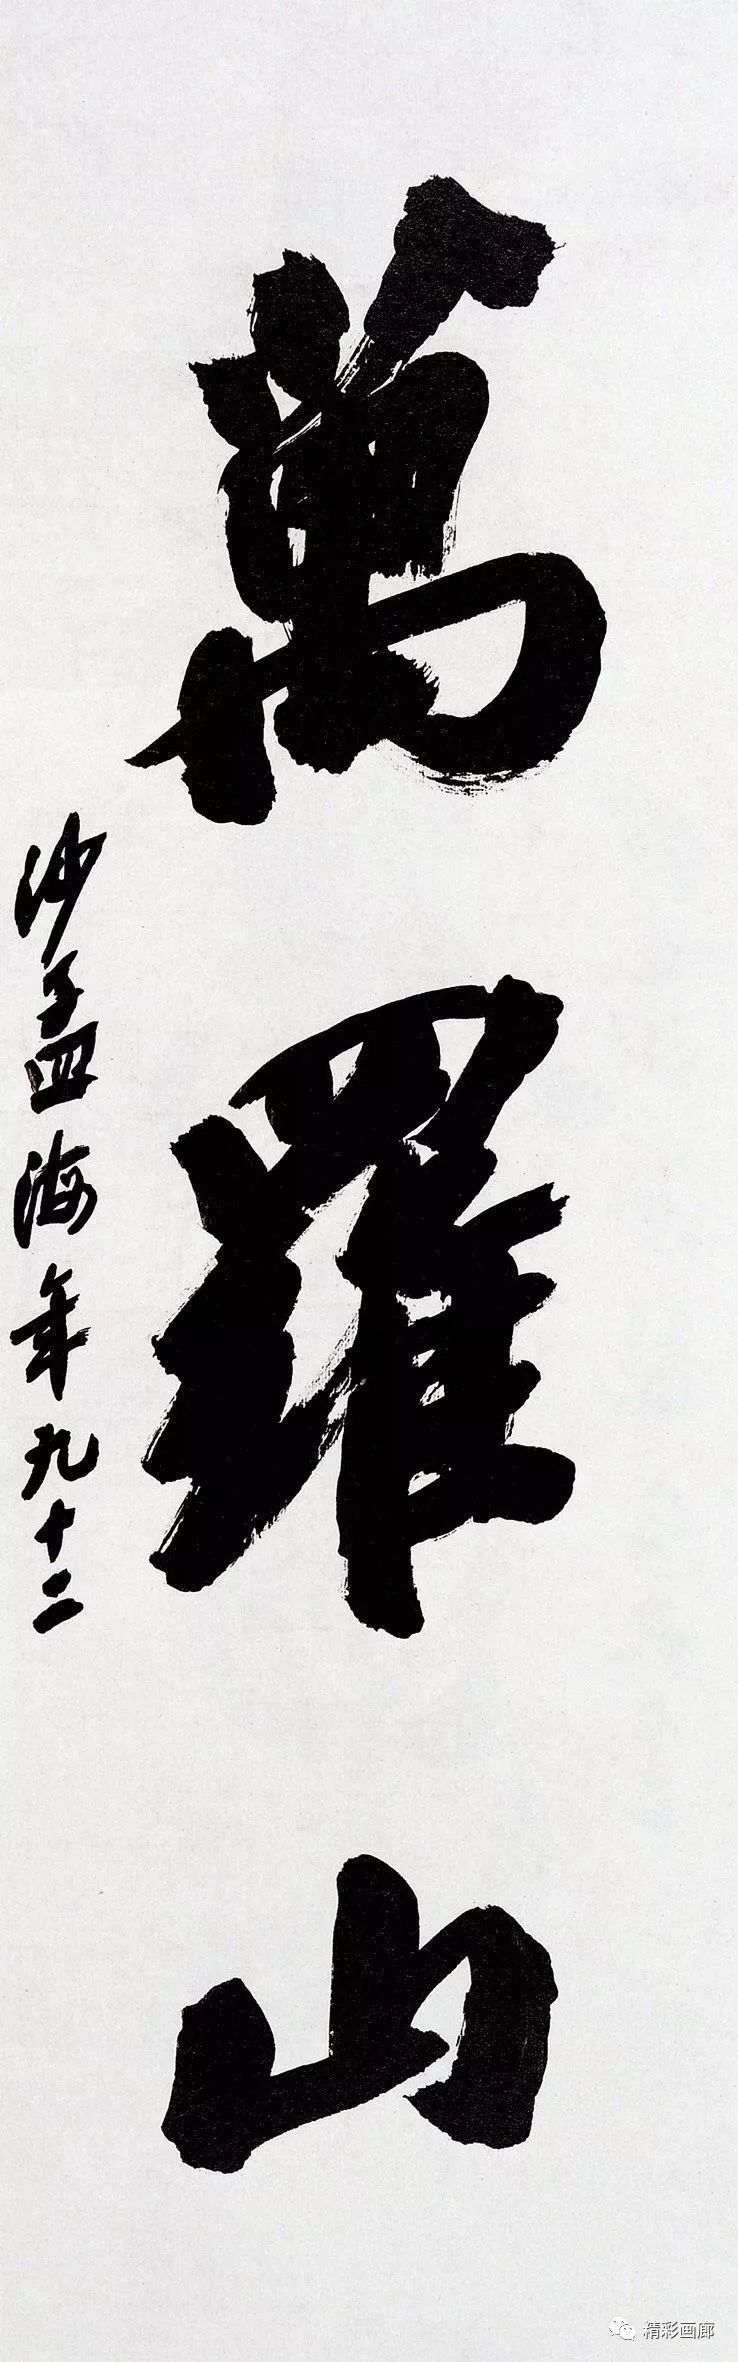 萬羅山
沙孟海年九十二
精彩画廊